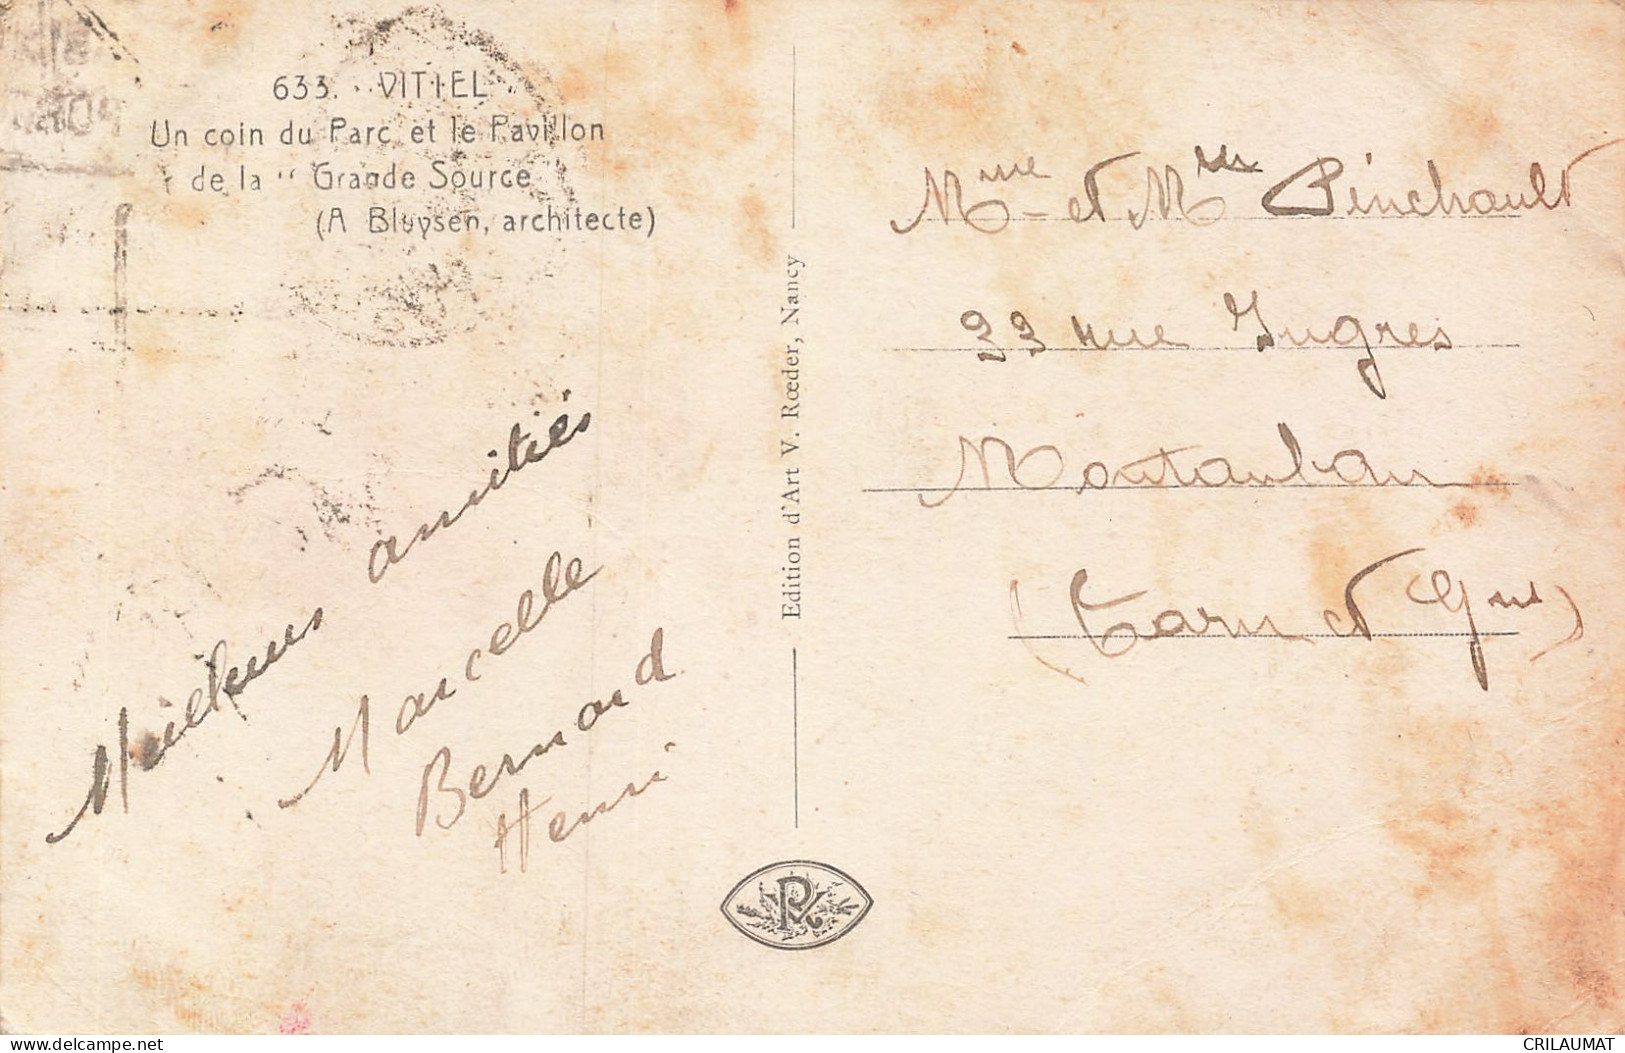 633. VITTEL
Un coin du Parc et le Pavillon
de la " Grande Source
(A Bluysen, architecte)
Meilleurs amitiés
Marcelle
Bernard
Henri
Edition d'Art V. Rœder, Nancy
Mme et Mlle Pinchault
33 rue Ingres
Montauban
(Tarn et Gne)
www.delcampe.net
CRILAUMAT